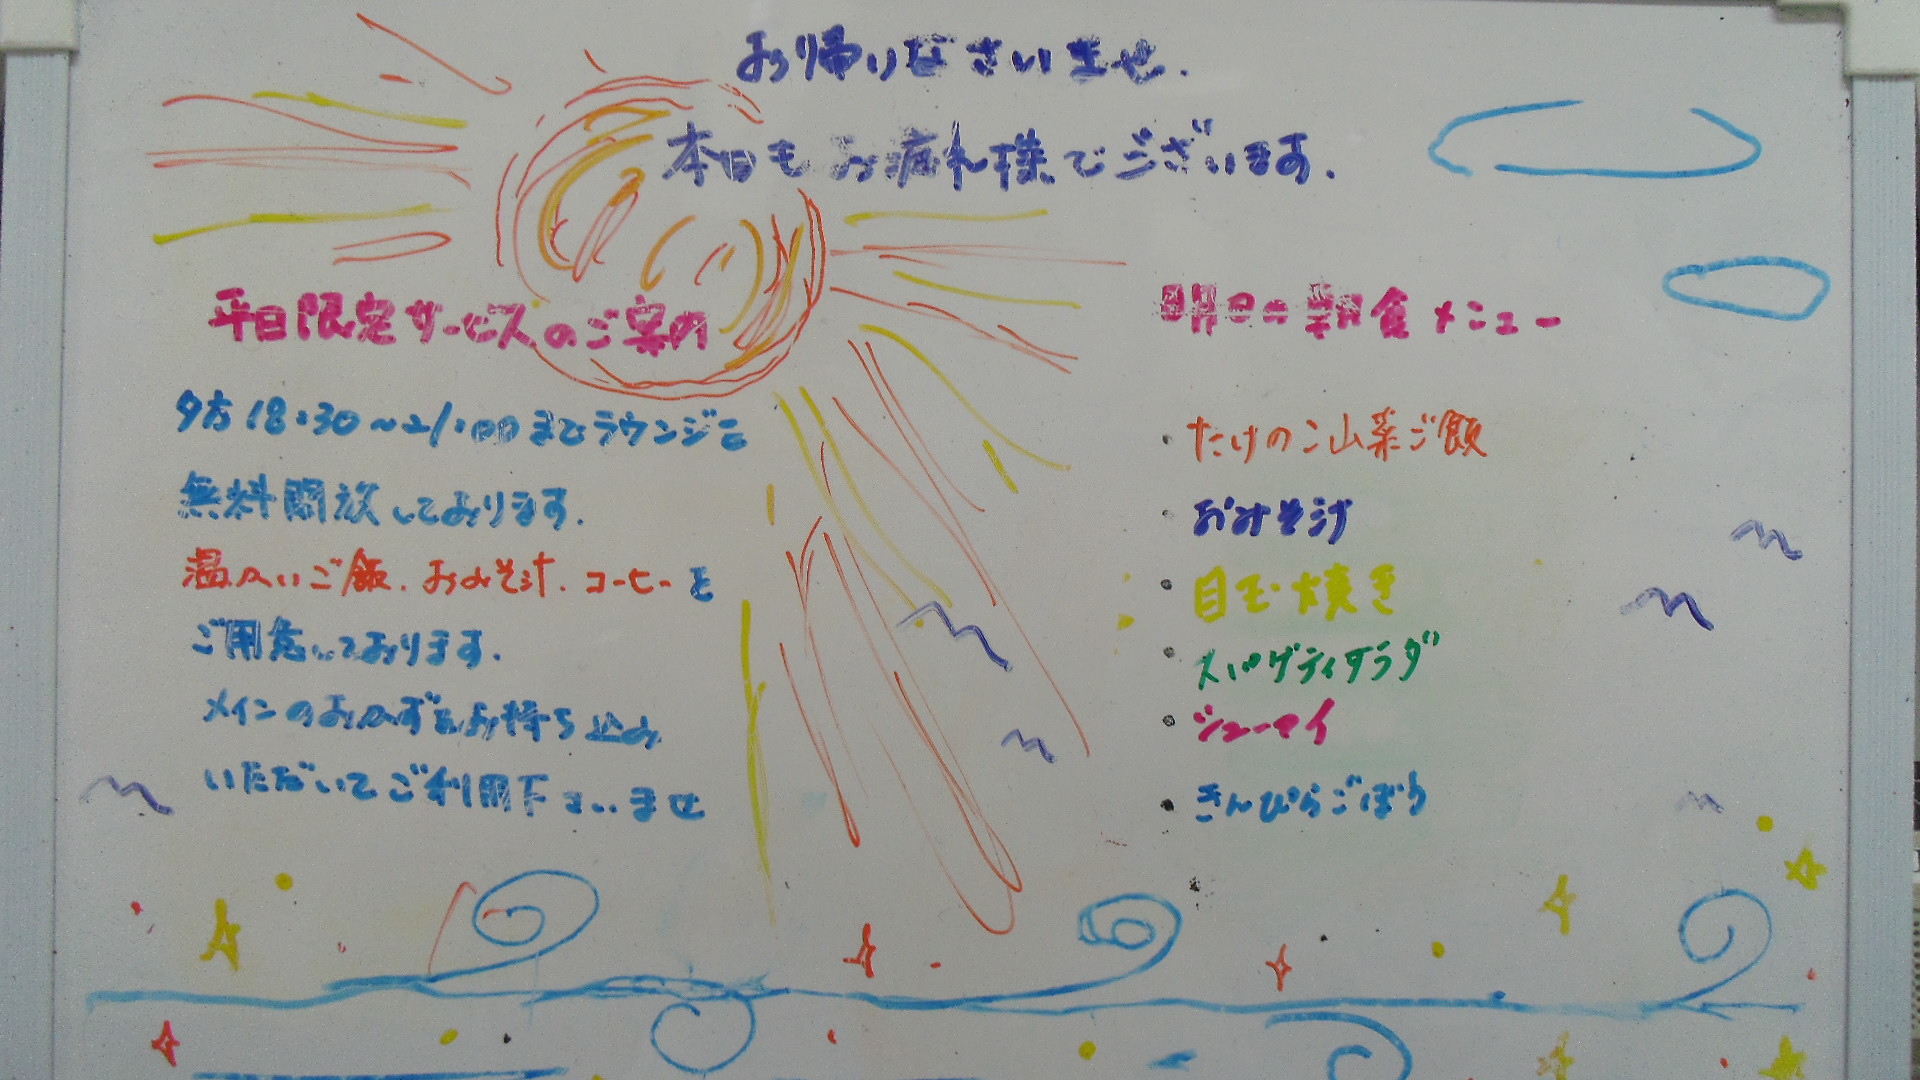 お帰りなさいませ.
本日もお疲れ様でございます.
平日限定サービスのご案内
夕方18:30～21:00までラウンジを
無料開放しております.
温かいご飯.おみそ汁.コーヒーを
ご用意しております.
メインのおかずをお持ち込み
いただいてご利用下さいませ
明日の朝食メニュー
・たけのこ山菜ご飯
・おみそ汁
・目玉焼き
・スパゲティサラダ
・シューマイ
・きんぴらごぼう